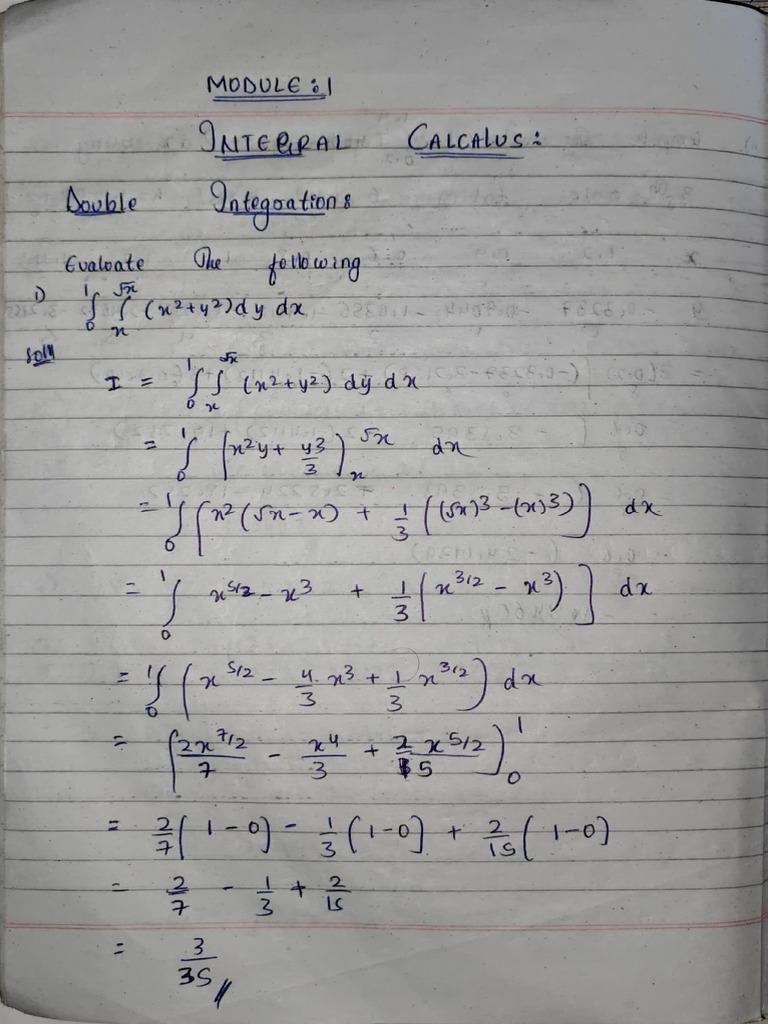 MODULE: 1
INTEGRAL CALCALUS:
Double Integrations
Evaluate The following
1) ∫₀¹ ∫ₓ^√x (x²+y²) dy dx
Soln
I = ∫₀¹ ∫ₓ^√x (x²+y²) dy dx
= ∫₀¹ [x²y + y³/3]ₓ^√x dx
= ∫₀¹ [x²(√x-x) + 1/3 ((√x)³-(x)³)] dx
= ∫₀¹ x^5/2 - x³ + 1/3 (x^3/2 - x³)] dx
= ∫₀¹ (x^5/2 - 4/3 x³ + 1/3 x^3/2) dx
= [2x^7/2/7 - x⁴/3 + 2x^5/2/15]₀¹
= 2/7 (1-0) - 1/3 (1-0) + 2/15 (1-0)
= 2/7 - 1/3 + 2/15
= 3/35 //